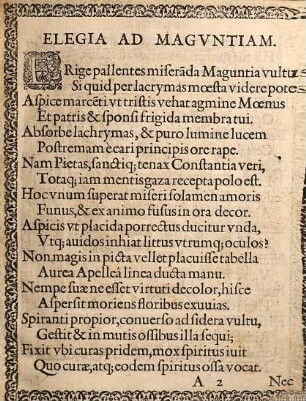 ELEGIA AD MAGVNTIAM.
ERige pallentes miserãda Maguntia vultus
Si quid per lacrymas mœsta videre potes
Aspice marcẽti vt tristis vehat agmine Mœnus
Et patris & sponsi frigida membra tui.
Absorbe lachrymas, & puro lumine lucem
Postremam è cari principis ore rape.
Nam Pietas, sanctiq; tenax Constantia veri,
Totaq; iam mentis gaza recepta polo est.
Hoc vnum superat miseri solamen amoris
Funus, & ex animo fusus in ora decor.
Aspicis vt placida porrectus ducitur vnda,
Vtq; auidos inhiat littus vtrumq; oculos?
Non magis in picta vellet placuisse tabella
Aurea Apelleâ linea ducta manu.
Nempe suæ ne esset virtuti decolor, hisce
Aspersit moriens floribus exuuias.
Spiranti propior, conuerso ad sidera vultu,
Gestit & in mutis ossibus illa sequi;
Fixit vbi curas pridem, mox spiritus iuit
Quo curæ, atq; eodem spiritus ossa vocat.
A 2 Nec